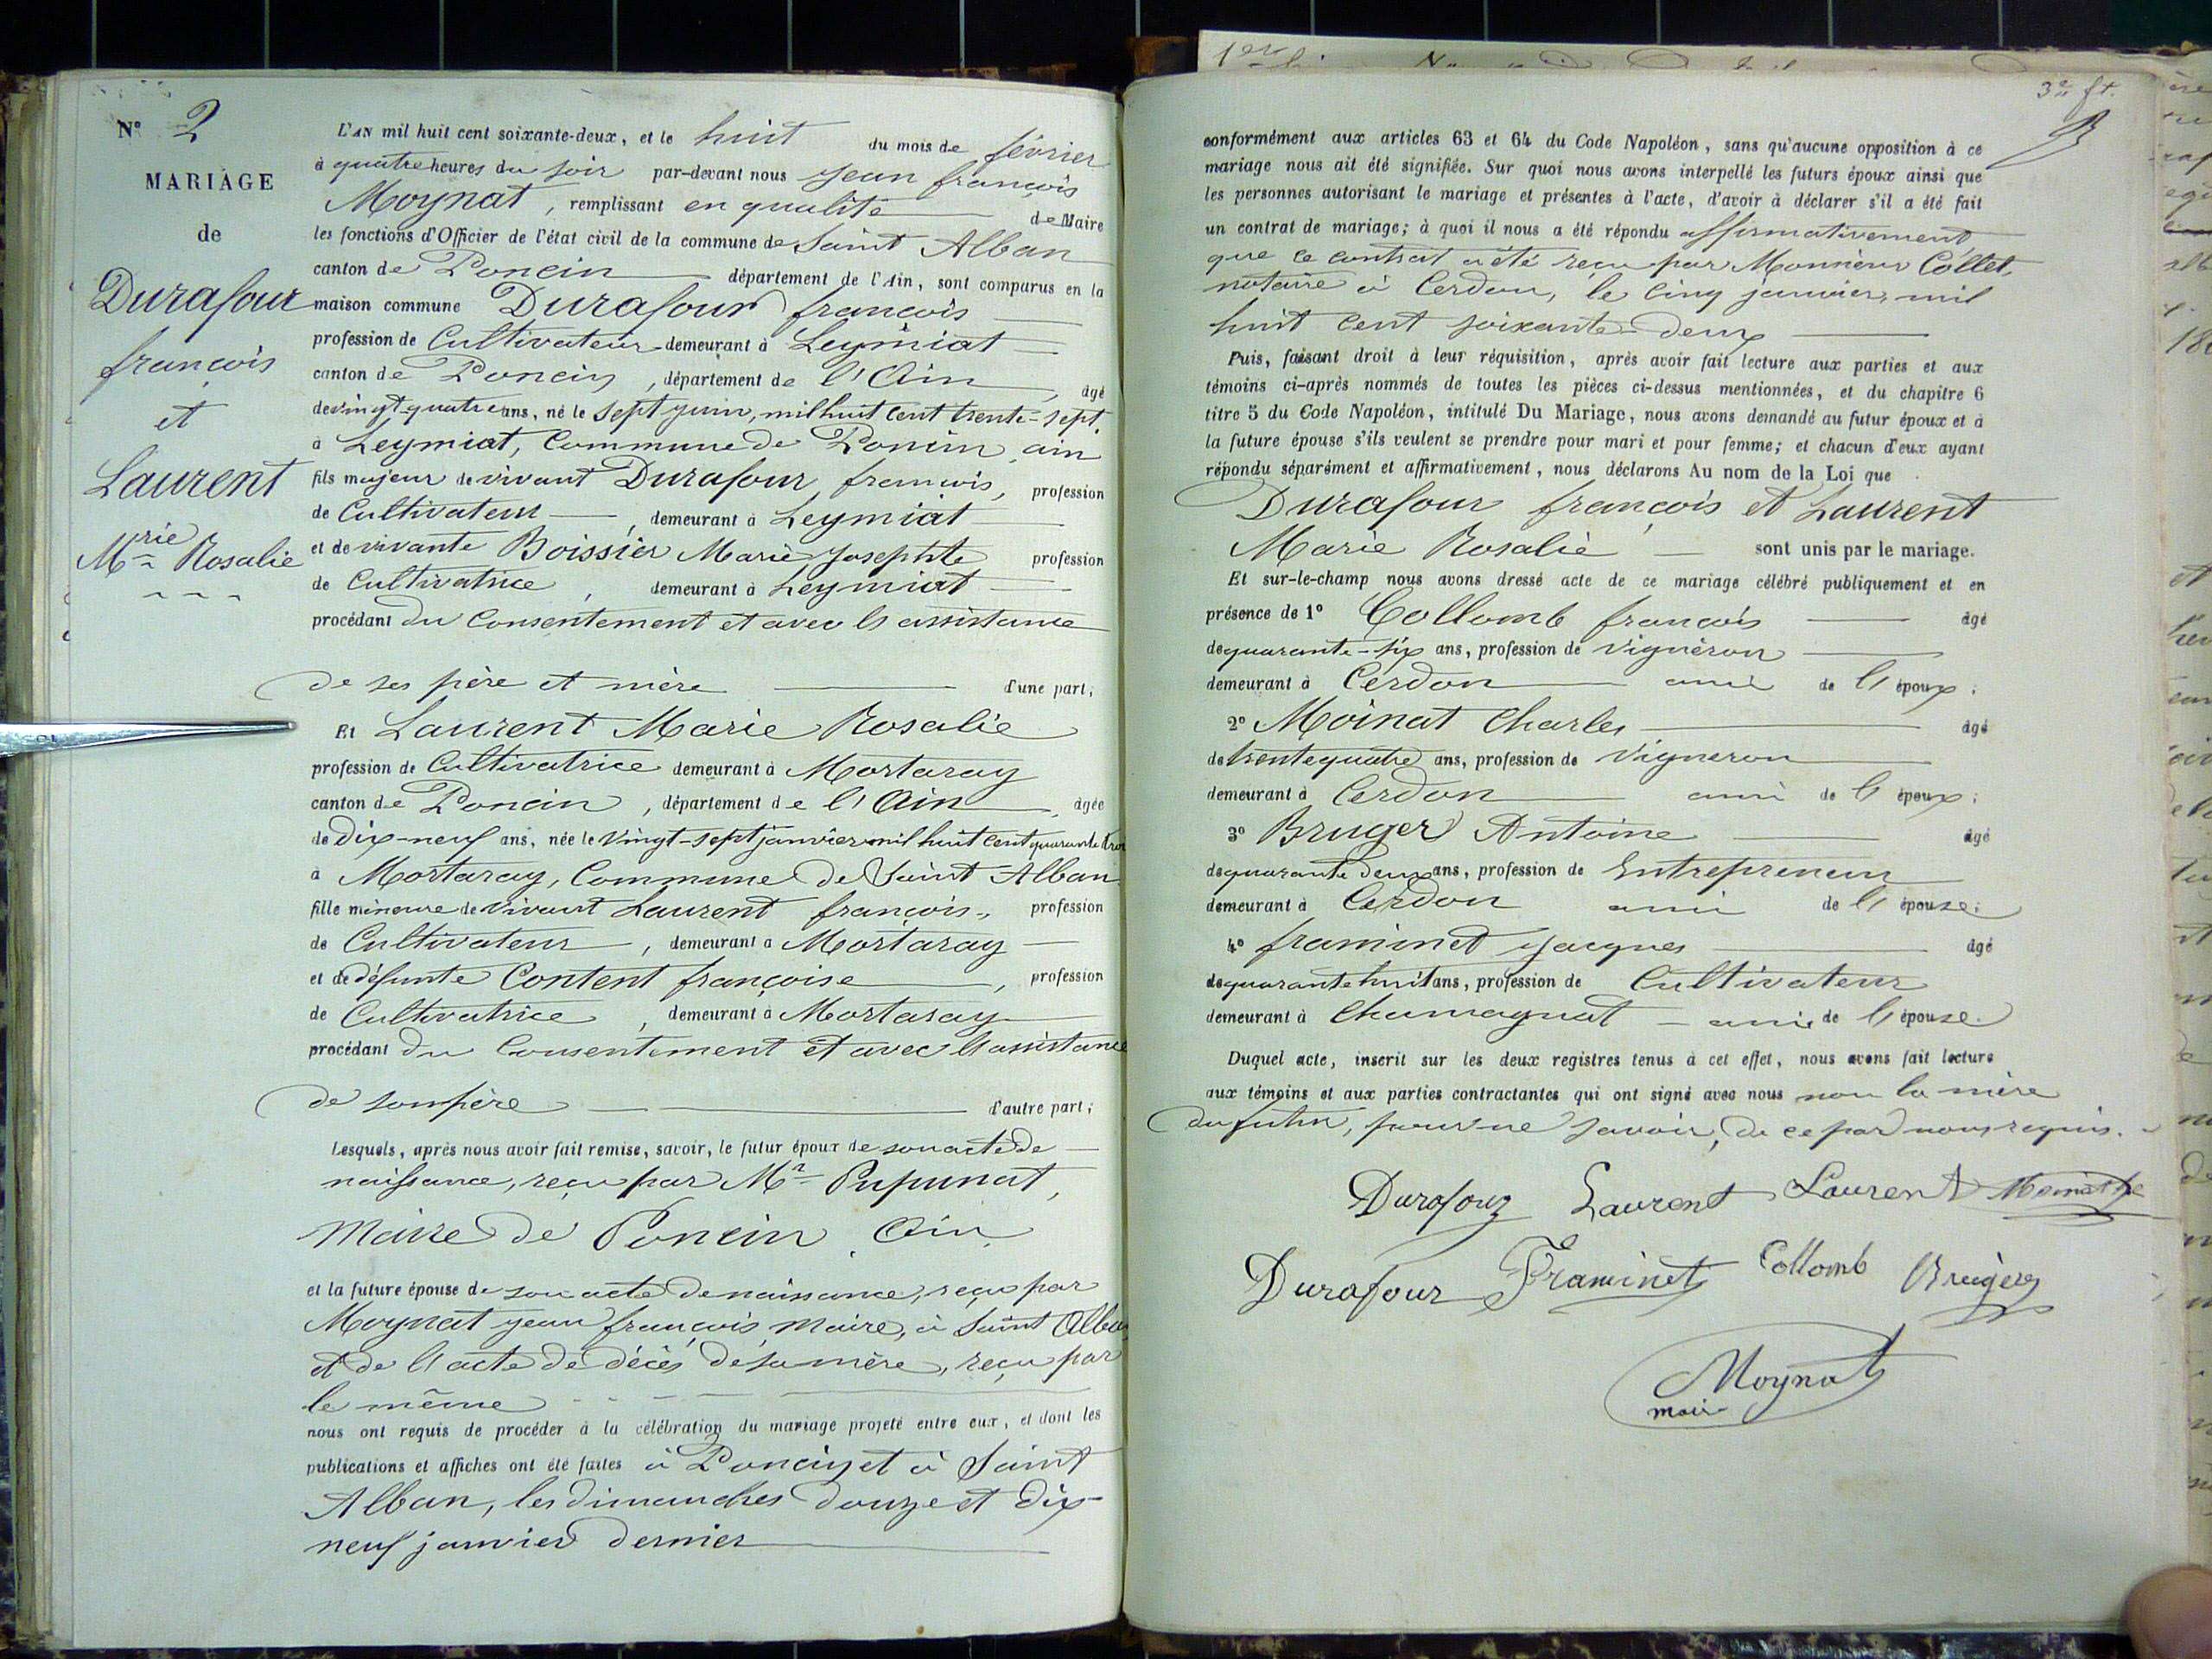 N° 2
MARIAGE
de
Durafour
françois
et
Laurent
Mrie Rosalie
L'AN mil huit cent soixante-deux, et le huit du mois de février
à quatre heures du soir par-devant nous Jean françois
Moynat, remplissant en qualité de Maire
les fonctions d'Officier de l'état civil de la commune de Saint Alban
canton de Poncin département de l'Ain, sont comparus en la
maison commune Durafour françois
profession de Cultivateur demeurant à Leymiat
canton de Poncin, département de l'Ain, âgé
de vingt-quatre ans, né le sept juin, mil huit cent trente-sept
à Leymiat, Commune de Poncin, ain
fils majeur de vivant Durafour françois, profession
de Cultivateur, demeurant à Leymiat
et de vivante Boissier Marie Josephte profession
de Cultivatrice, demeurant à Leymiat
procédant du Consentement et avec l'assistance
de ses père et mère d'une part;
Et Laurent Marie Rosalie
profession de Cultivatrice demeurant à Mortaray
canton de Poncin, département de l'Ain, âgée
de Dix-neuf ans, née le vingt-sept janvier mil huit cent quarante trois
à Mortaray, Commune de Saint Alban
fille mineure de vivant Laurent françois, profession
de Cultivateur, demeurant à Mortaray
et de défunte Content françoise, profession
de Cultivatrice, demeurant à Mortaray
procédant du Consentement et avec l'assistance
de son père d'autre part;
Lesquels, après nous avoir fait remise, savoir, le futur époux de son acte de
naissance, reçu par Mr Pupunat,
Maire de Poncin, Ain,
et la future épouse de son acte de naissance, reçu par
Moynat jean françois, maire, à Saint Alban
et de l'acte de décès de sa mère, reçu par
le même
nous ont requis de procéder à la célébration du mariage projeté entre eux, et dont les
publications et affiches ont été faites à Poncin et à Saint
Alban, les dimanches douze et dix-
neuf janvier dernier
1er
3e ft.
conformément aux articles 63 et 64 du Code Napoléon, sans qu'aucune opposition à ce
mariage nous ait été signifiée. Sur quoi nous avons interpellé les futurs époux ainsi que
les personnes autorisant le mariage et présentes à l'acte, d'avoir à déclarer s'il a été fait
un contrat de mariage; à quoi il nous a été répondu affirmativement
que ce contrat a été reçu par Monsieur Collet,
notaire à Cerdon, le cinq janvier, mil
huit cent soixante-deux
Puis, faisant droit à leur réquisition, après avoir fait lecture aux parties et aux
témoins ci-après nommés de toutes les pièces ci-dessus mentionnées, et du chapitre 6
titre 5 du Code Napoléon, intitulé Du Mariage, nous avons demandé au futur époux et à
la future épouse s'ils veulent se prendre pour mari et pour femme; et chacun d'eux ayant
répondu séparément et affirmativement, nous déclarons Au nom de la Loi que
Durafour françois et Laurent
Marie Rosalie sont unis par le mariage.
Et sur-le-champ nous avons dressé acte de ce mariage célébré publiquement et en
présence de 1° Collomb françois âgé
de quarante-six ans, profession de vigneron
demeurant à Cerdon ami de l'époux;
2° Moinat Charles âgé
de trente quatre ans, profession de vigneron
demeurant à Cerdon ami de l'époux;
3° Bruger Antoine âgé
de quarante deux ans, profession de Entrepreneur
demeurant à Cerdon ami de l'épouse;
4° framinet jacques âgé
de quarante huit ans, profession de Cultivateur
demeurant à Chamagnat ami de l'épouse.
Duquel acte, inscrit sur les deux registres tenus à cet effet, nous avons fait lecture
aux témoins et aux parties contractantes qui ont signé avec nous non la mère
du futur, pour ne savoir, de ce par nous requis.
Durafour Laurent Laurent
Durafour Framinet Collomb Brugere
Moynat
mair